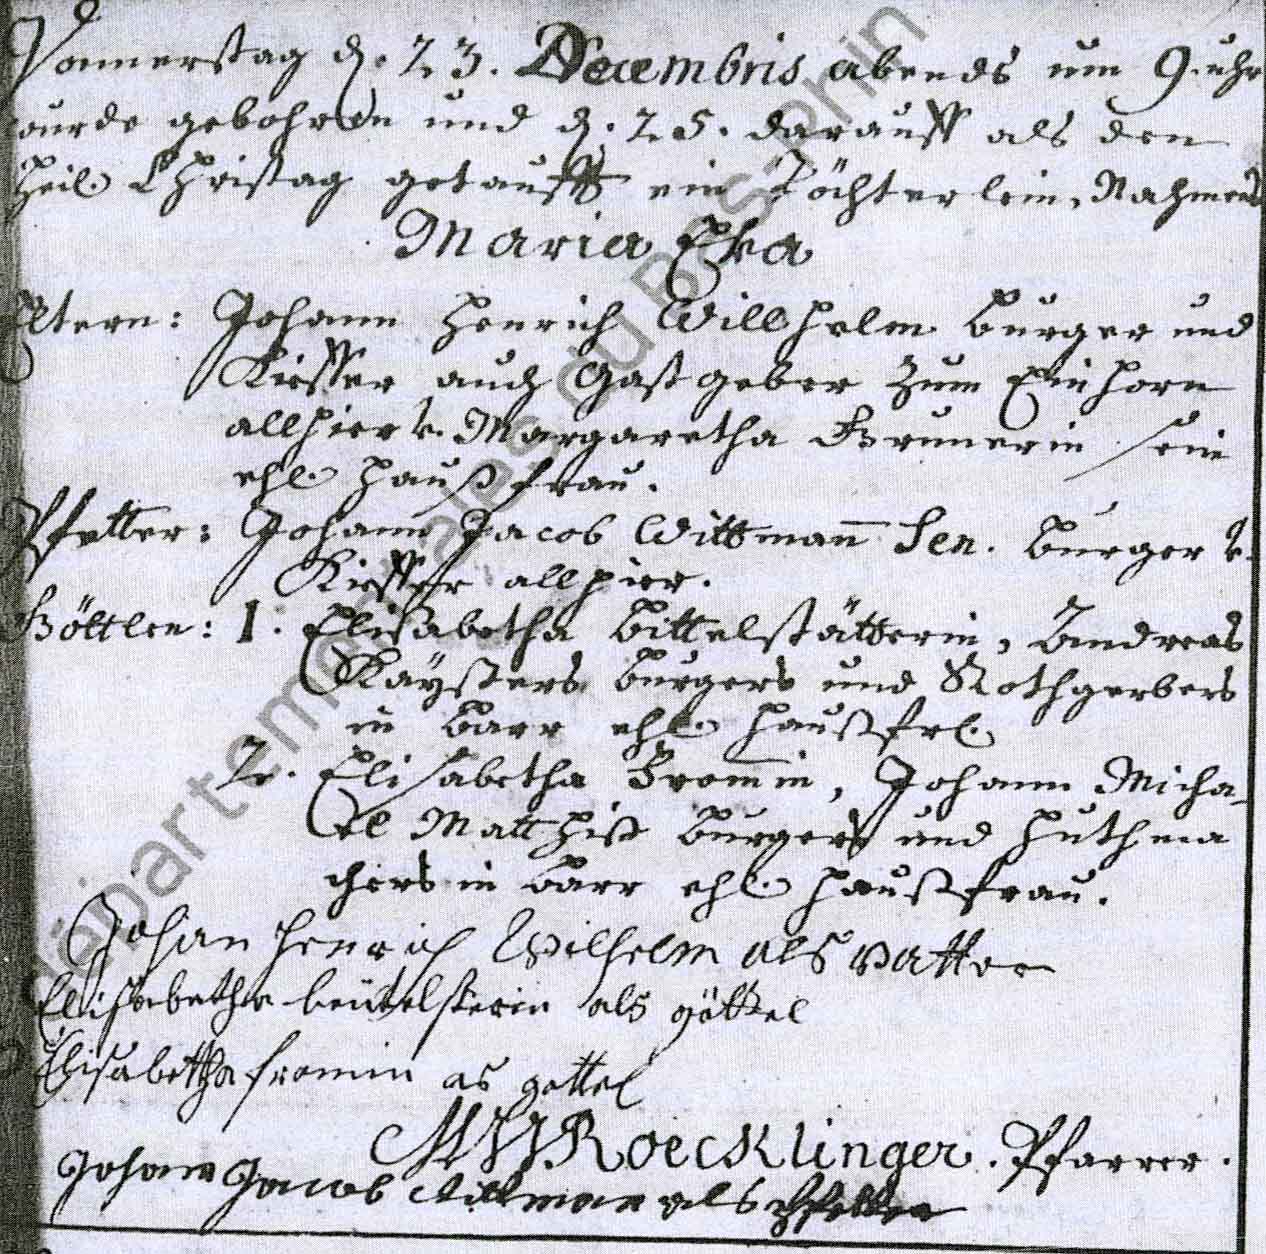 Donnerstag d. 23. Decembris abends um 9. uhr
wurde gebohren und d. 25. darauff als den
Heil. Christag getaufft ein Töchterlein, Nahmens
Maria Eva
Eltern: Johann Henrich Willhelm burger und
Kieffer auch Gastgeber zum Einhorn
allhier v. Margaretha Brunerin sein
ehl. Haußfrau.
Pfetter: Johann Jacob Wittman̄ Sen. burger v.
Kieffer allhier.
Göttlen: 1. Elisabetha Bittelstätterin, Andreas
Kaÿsers burgers und Rothgerbers
in Barr ehl. Haußfr.
2. Elisabetha From̄in, Johann Micha-
el Matthiß burgers und Huthma
chers in Barr ehl. Haußfrau.
Johan Henrich Wilhelm als vatter
Elisabetha beütelsterin als göttel
Elisabetha fromin as gettel
MHJRoecklinger. Pfarrer.
Johann Jacob Witman als Pfetter
départementales du Bas-Rhin